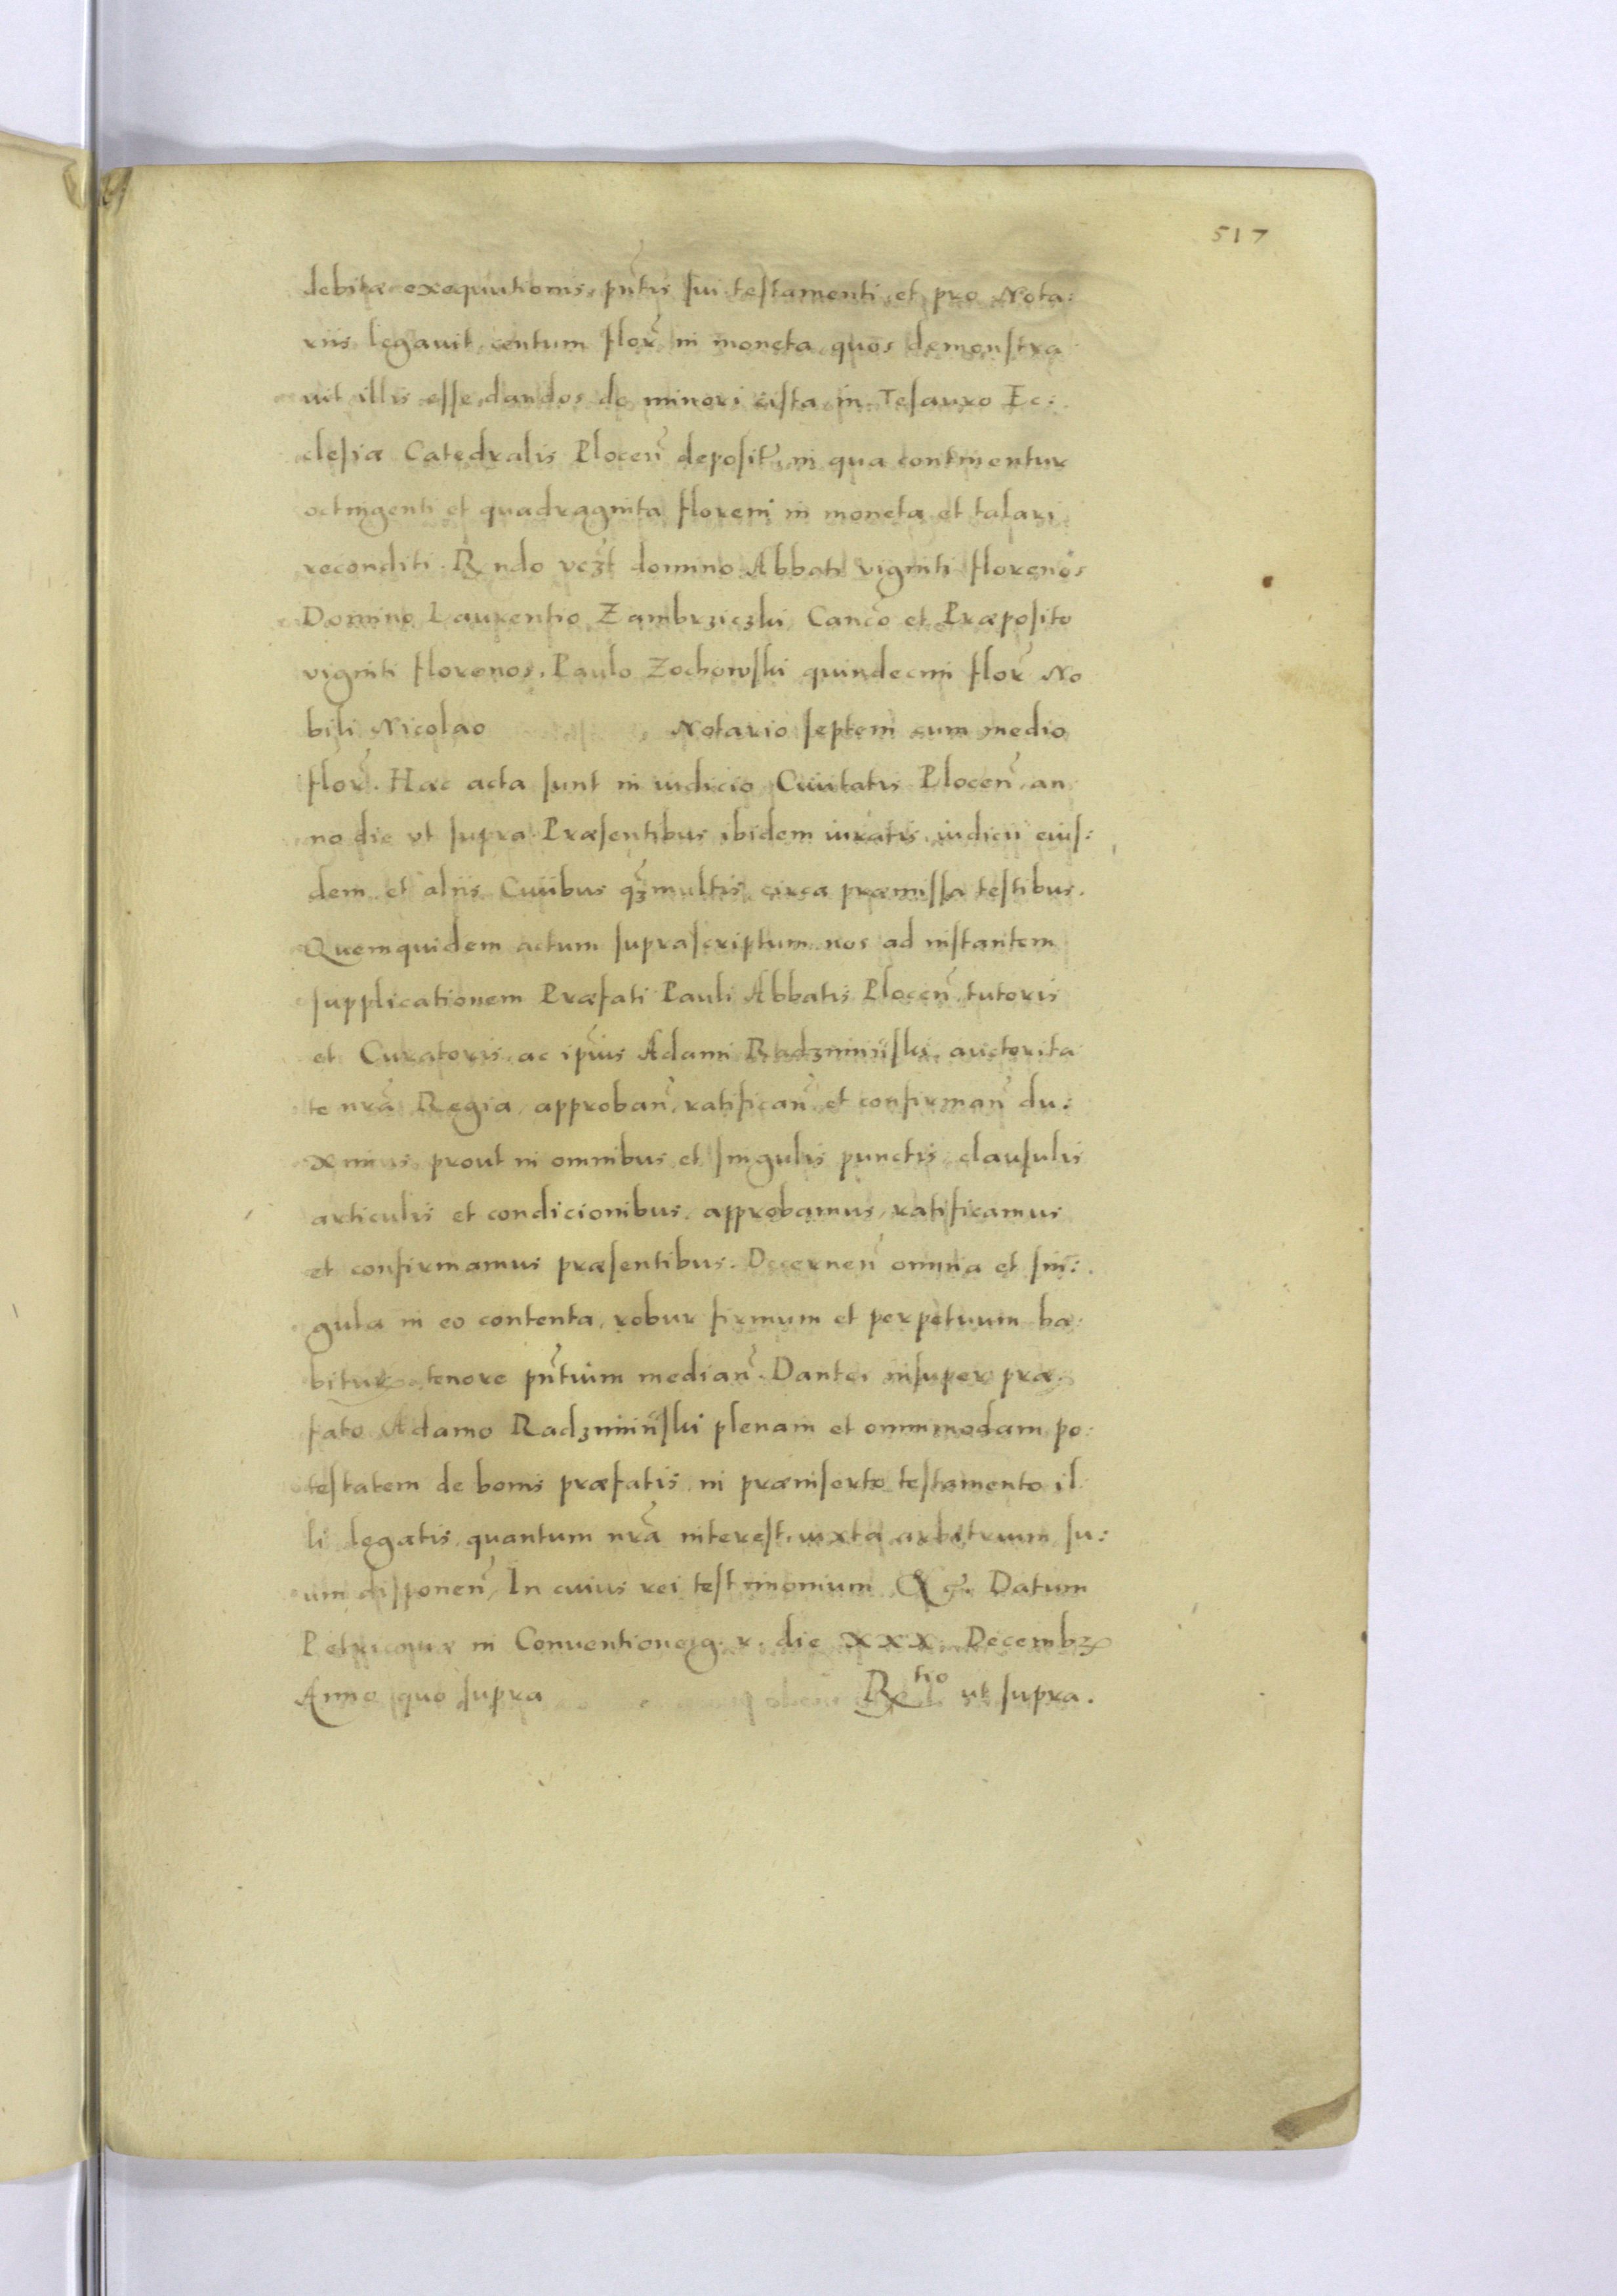 517
debitae exequutionis pñtis sui testamenti et pro Nota:
riis legavit centum florẽ in moneta quos demonstra
uit illis esse dandos de minori cista in Tesauro Ec:
clesiæ Catedralis Plocen̄ deposit̃, in qua continentur
octingenti et quadraginta floreni in moneta et talari
reconditi. Rndo vczt domino Abbati viginti florenos
Domino Laurentio Zambrziczki Canc̃o et Præposito
viginti florenos, Paulo Zochowski quindecim florẽ No
bili Nicolao Notario septem cum medio
florẽ. Hæc acta sunt in iudicio Ciuitatis Plocen̄ an
no die vt supra Præsentibus ibidem iuratis iudicii eius:
dem et aliis Ciuibus qz multis circa præmissa testibus.
Quemquidem actum suprascriptum nos ad instantem
supplicationem Præfati Pauli Abbatis Plocen̄ tutoris
et Curatoris ac ip̃ius Adami Radzminiski auctorita
te nrã Regia approban̄ ratifican̄ et confirman̄ du:
ximus prout in omnibus et singulis punctis clausulis
articulis et condicionibus approbamus ratificamus
et confirmamus præsentibus. Decernen̄ omnia et sin:
gula in eo contenta robur firmum et perpetuum ha:
bitur tenore pñtium median̄. Dantes insuper præ
fato Adamo Radzminiski plenam et omnimodam po:
testatem de bonis præfatis in præinserto testamento il
li legatis quantum nrã interest iuxta arbitrium su:
um disponen̄, In cuius rei testimonium &c. Datum
Petricouiæ in Conventione g. r. die XXX. Decembz
Anno quo supra Reltio ut supra.